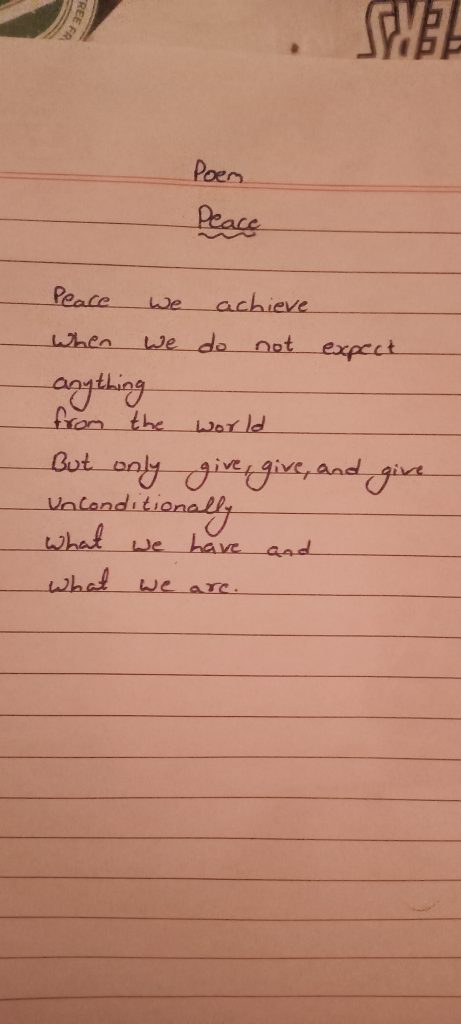 FREE FR
Poem
Peace
Peace we achieve
When we do not expect
anything
from the world
But only give, give, and give
unconditionally
what we have and
what we are.